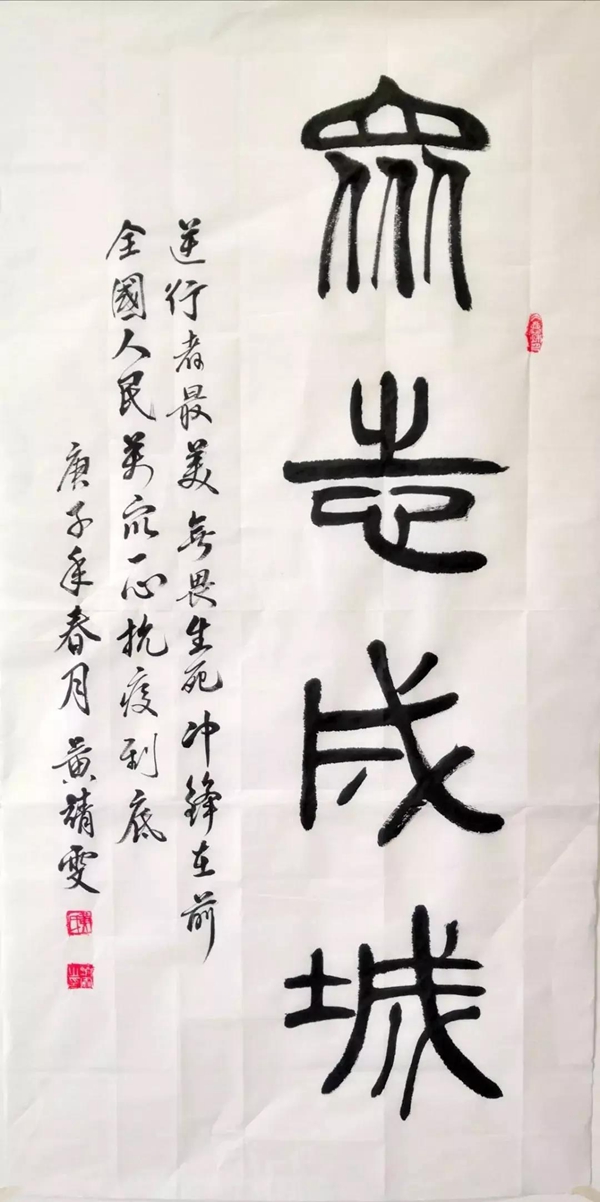 眾志成城
逆行者最美無畏生死冲鋒在前
全國人民萬眾一心抗疫到底
庚子年春月黄靖雯